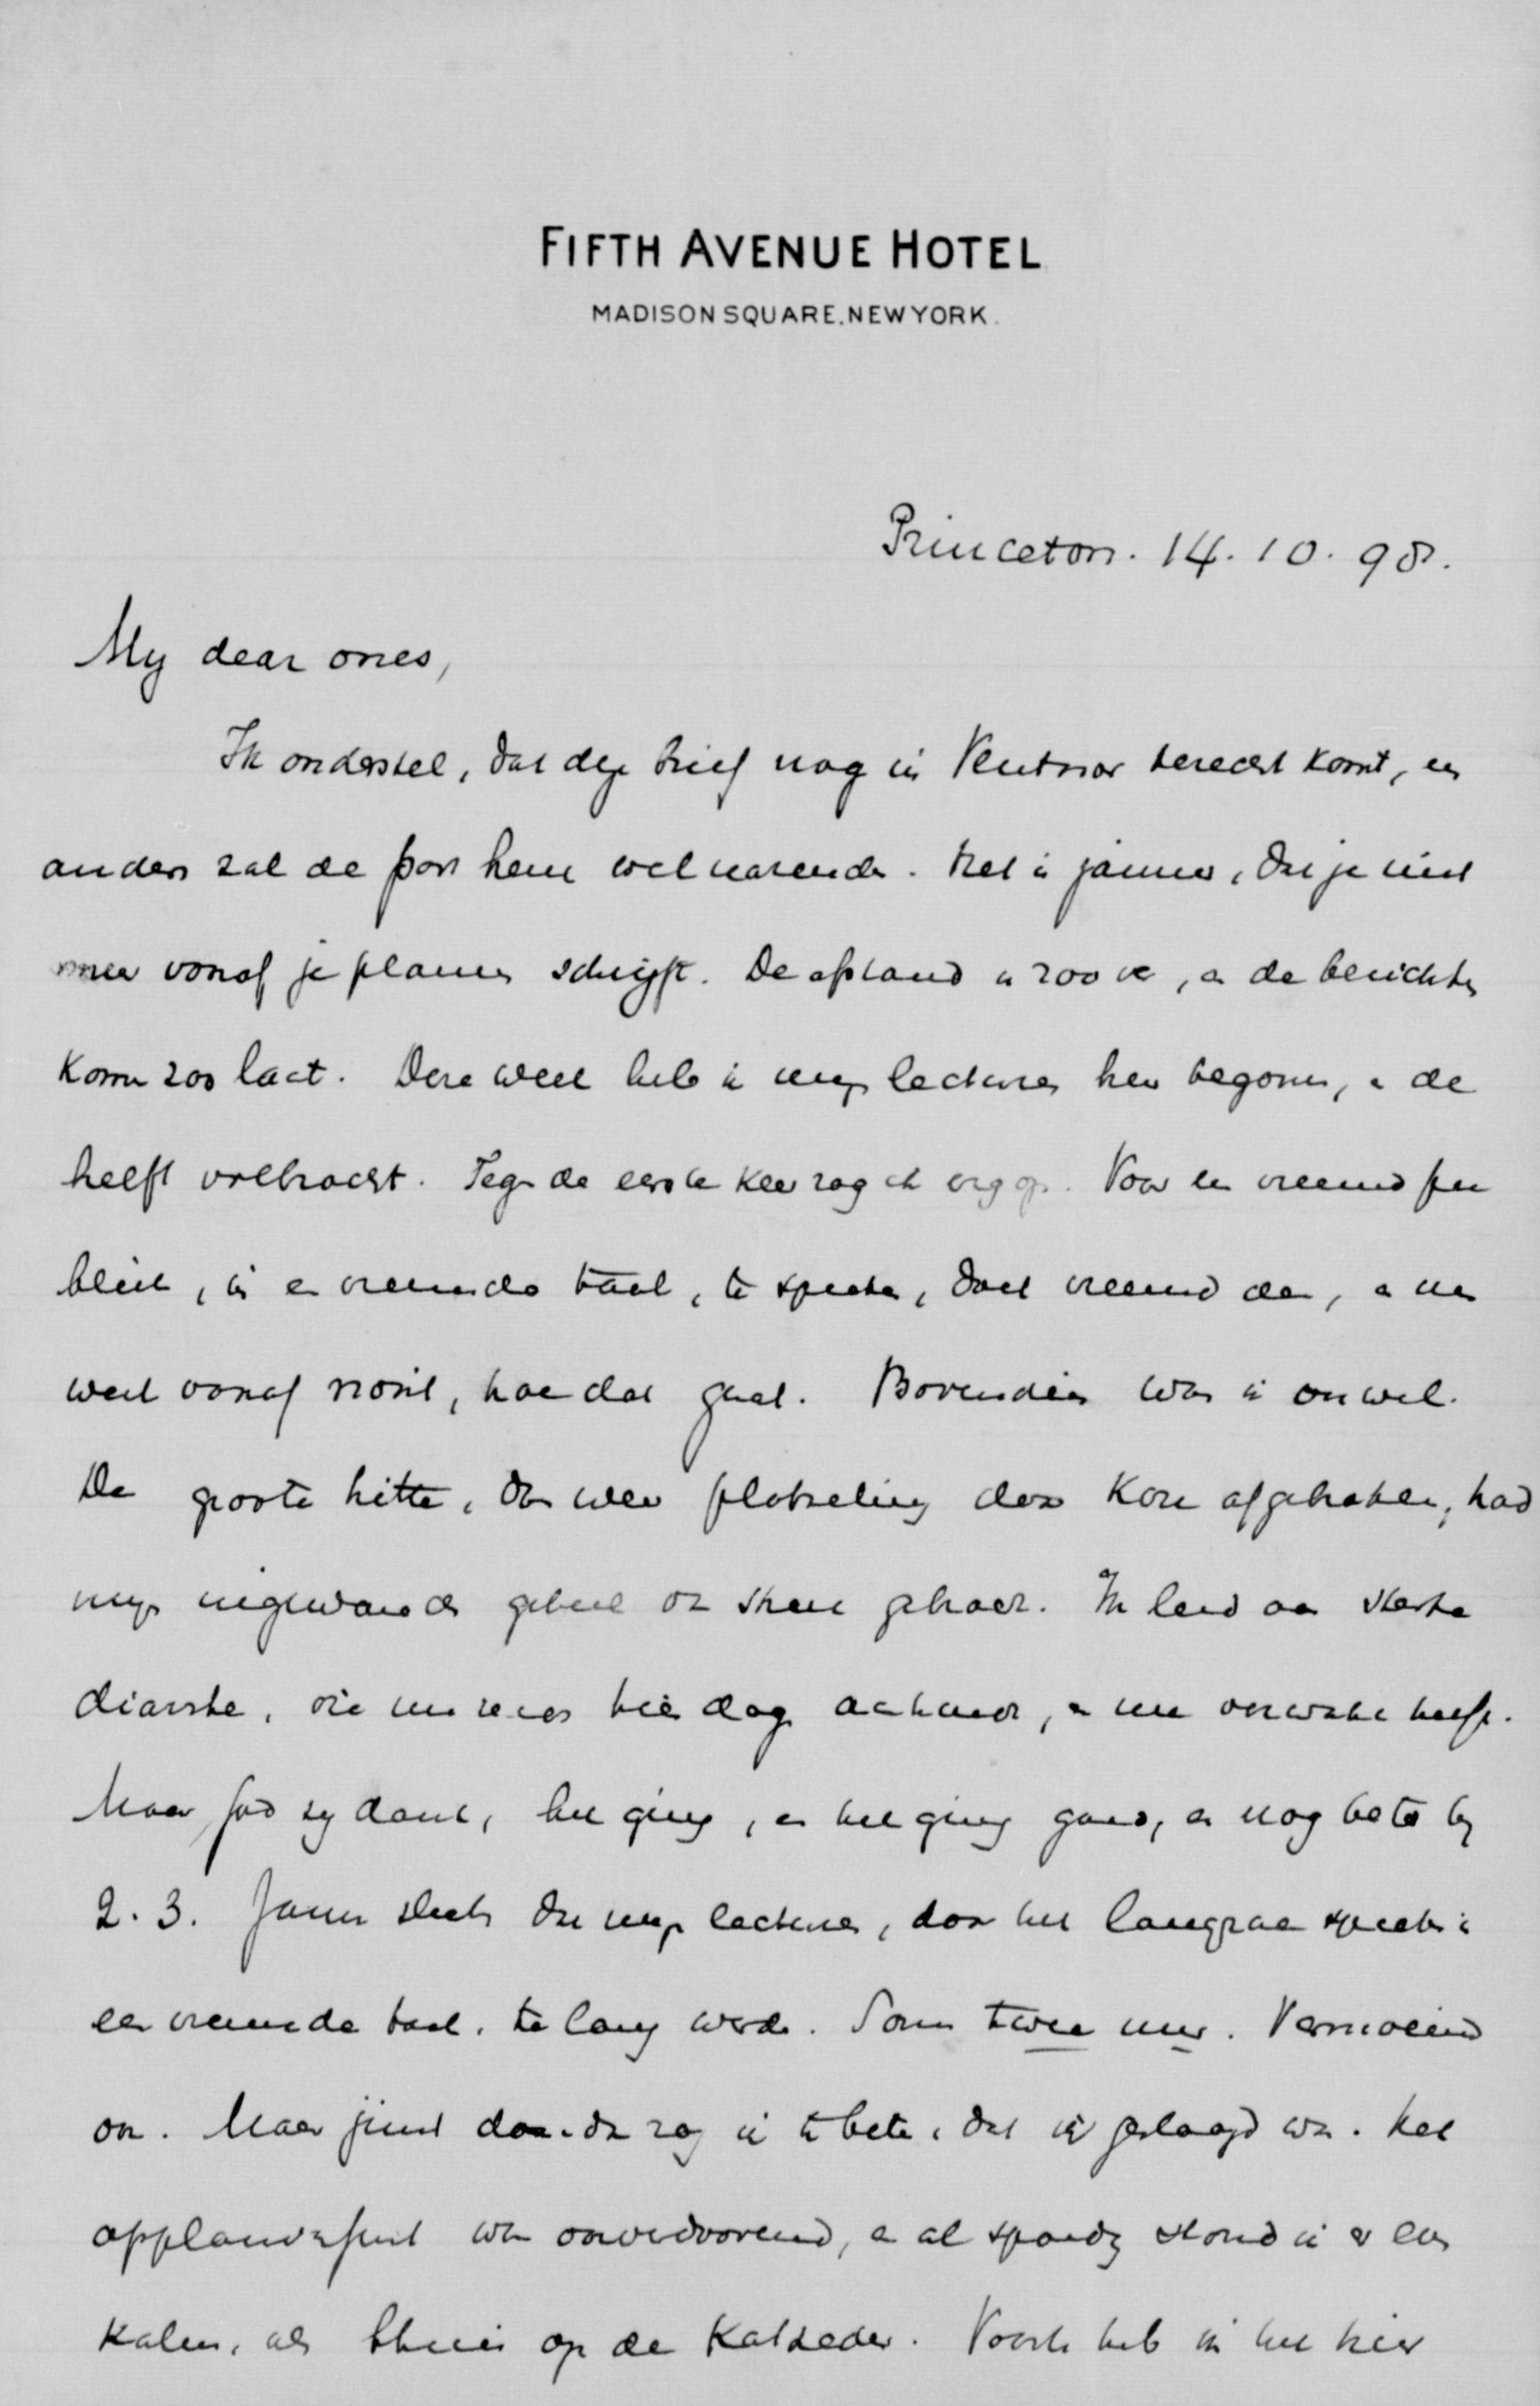 FIFTH AVENUE HOTEL
MADISON SQUARE. NEW YORK.
Princeton. 14. 10. 98.
My dear ones,
Ik onderstel, dat deze brief nog in Ventnor terecht komt, en
anders zal de post hem wel nazenden. Het is jammer, dat je niet
meer vooraf je plannen schrijft. De afstand is zoo ver, en de berichten
komen zoo laat. Deze week heb ik mijn lectures hier begonnen, en de
helft volbracht. Tegen de eerste keer zag ik erg op. Voor een vreemd pu
bliek, in een vreemde taal, te spreken, doet vreemd aan, en men
weet vooraf nooit, hoe dat gaat. Bovendien was ik onwel.
De groote hitte, dan weer plotseling door kou afgebroken, had
mijn ingewanden geheel van streek gebracht. Ik leed aan sterke
diarrhe, die me reeds tien dagen aanhield, en me verzwakt heeft.
Maar God zij dank, het ging, en het ging goed, en nog beter bij
2. 3. Jammer slechts dat mijn lectures, door het langzaam spreken in
een vreemde taal, te lang werden. Soms twee uur. Vermoeiend
Maar juist daaraan zag ik te beter, dat ik geslaagd was. Het
was onverdoovend, en al spoedig stond ik er even
kalm, als thuis op de Katheder. Voorts heb ik het hier